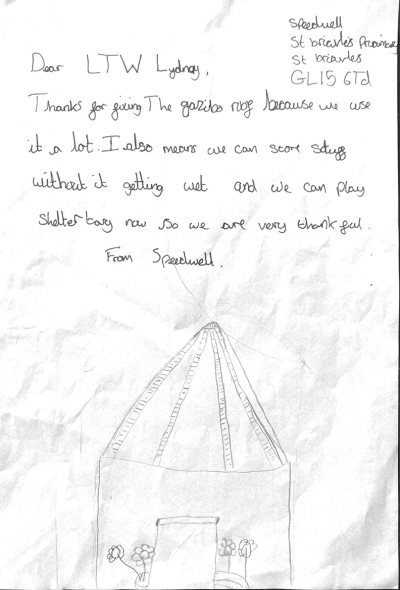 Speedwell
St briavles Priamary
St briavles
GL15 6Td
Dear LTW Lydney,
Thanks for giving The gazibo roof because we use
it a lot. I also means we can store stuff
without it getting wet and we can play
Shelter bay now so we are very thankful.
From Speedwell.